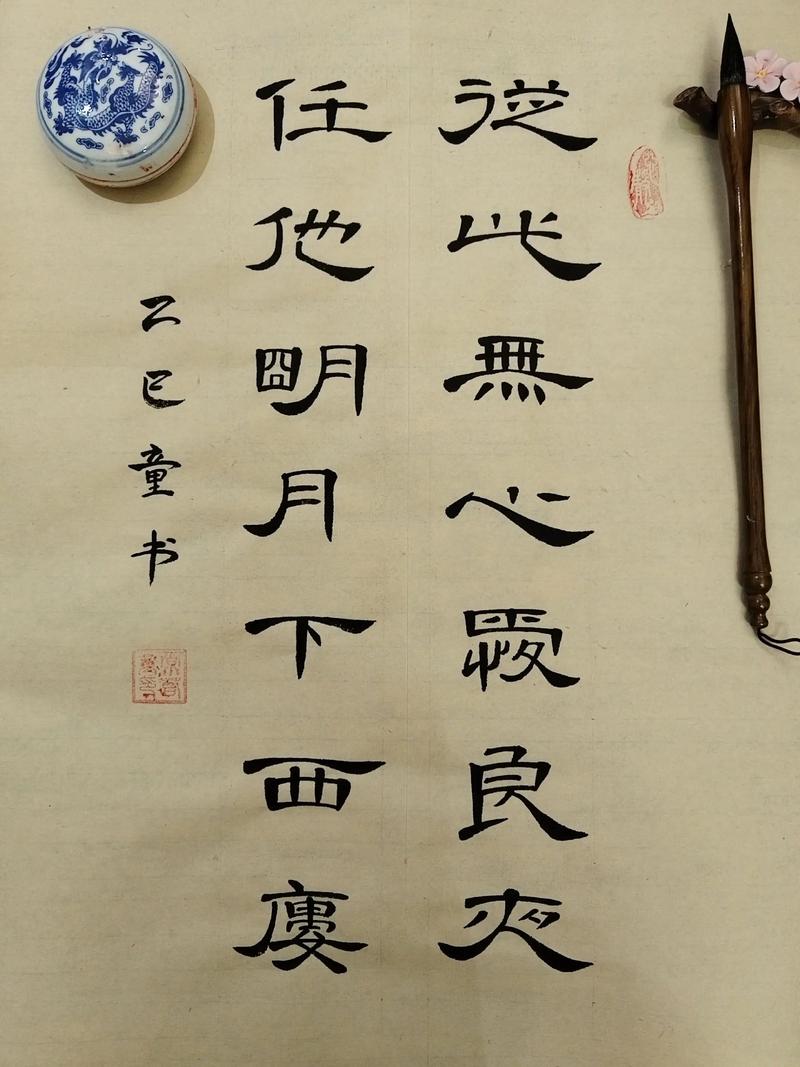 從此無心愛良夜
任他明月下西廔
乙巳童书